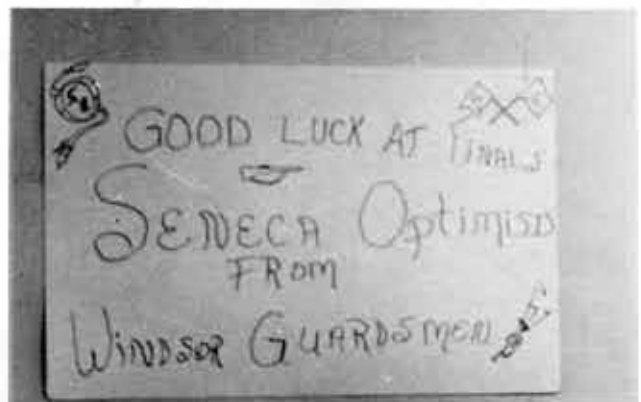 GOOD LUCK AT FINALS
SENECA Optimists
FROM
WINDSOR GUARDSMEN